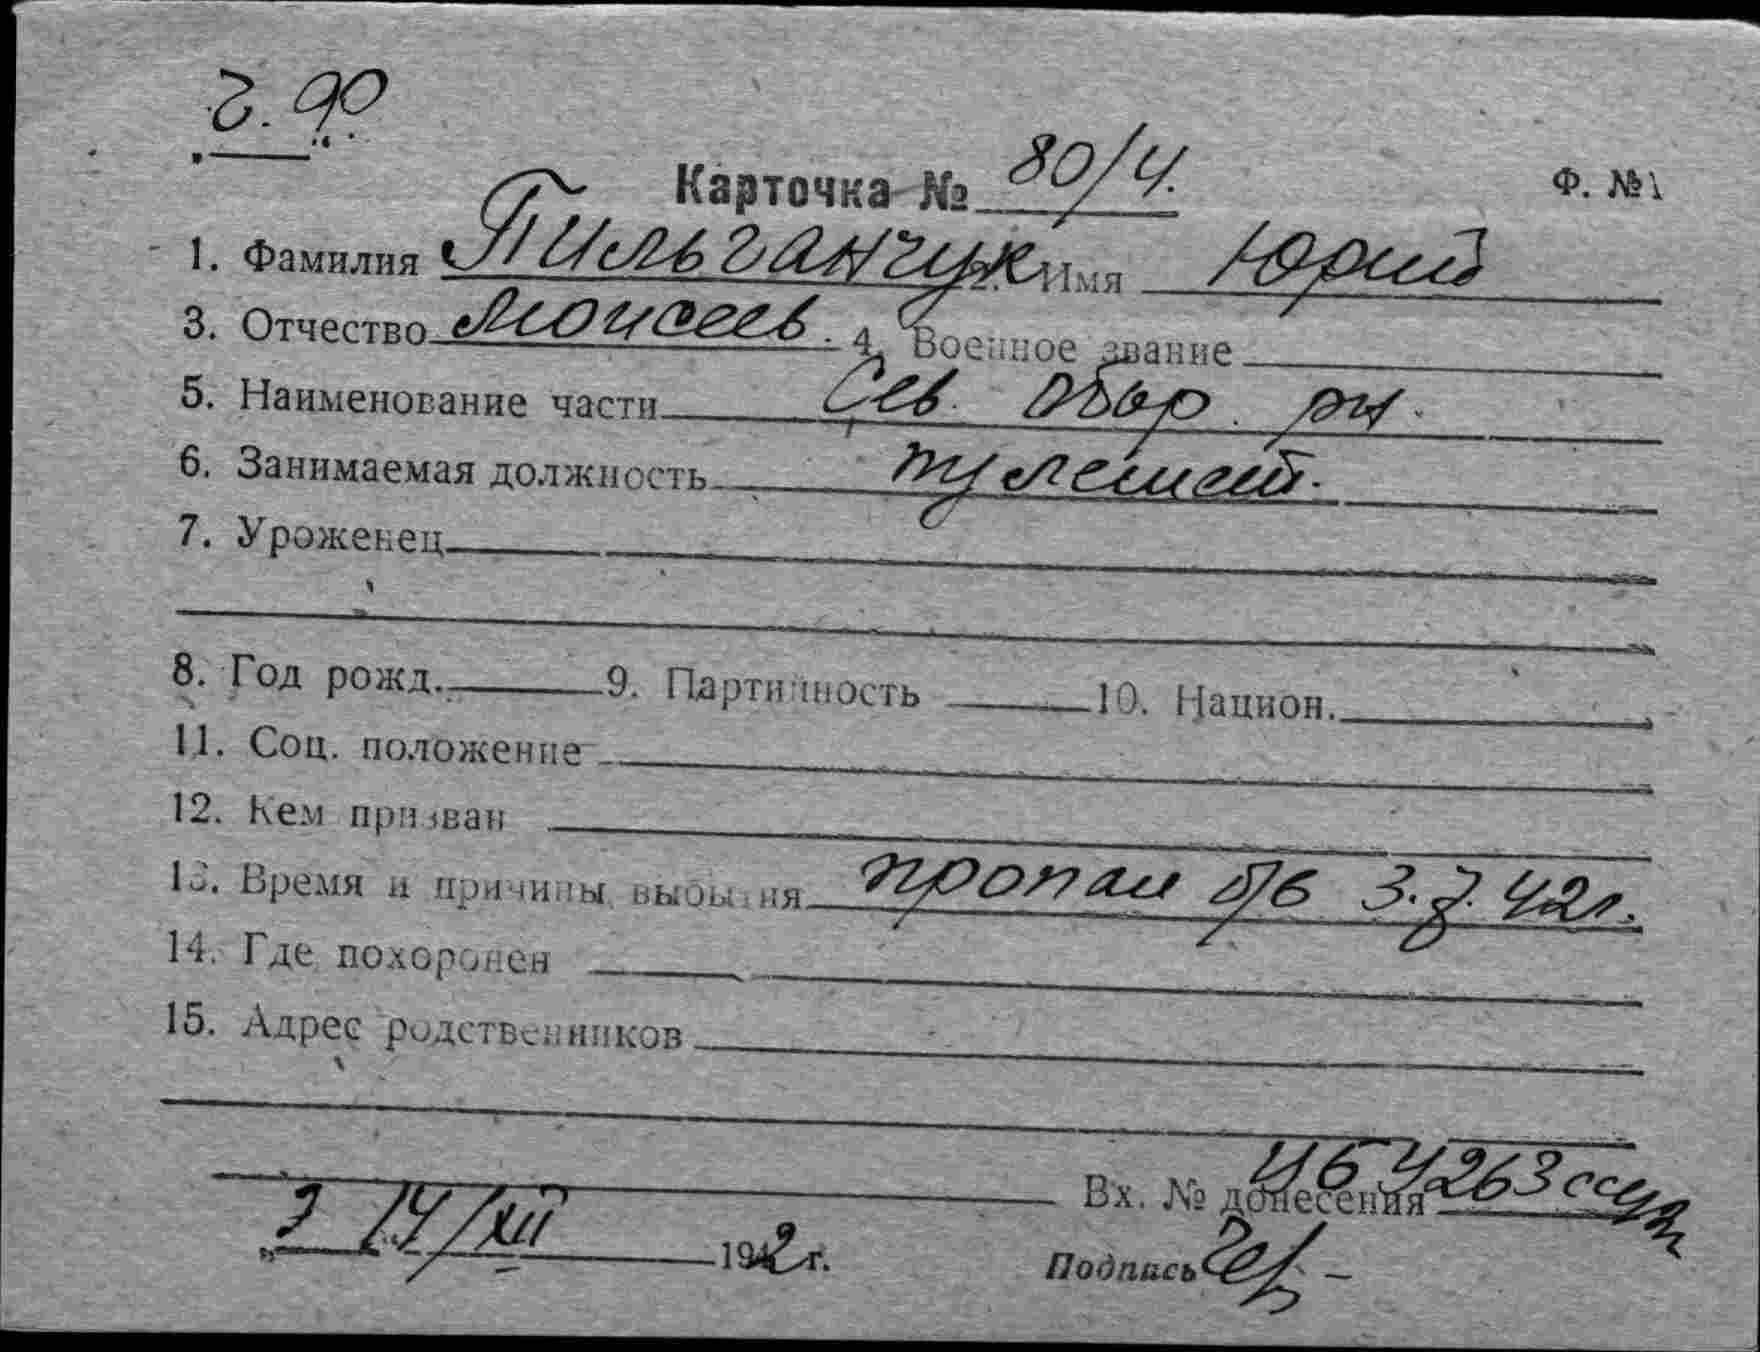 Карточка № 80/4.
Ф. №1
1. Фамилия Пильганчук 2. Имя Юрий
3. Отчество Моисеев. 4. Военное звание
5. Наименование части Сев. обор. рн.
6. Занимаемая должность пулемет.
7. Уроженец
8. Год рожд. 9. Партийность 10. Национ.
11. Соц. положение
12. Кем призван
13. Время и причины выбытия пропал б/в 3.7.42г.
14. Где похоронен
15. Адрес родственников
Вх. № донесения 4263
14/XII 1942 г.
Подпись